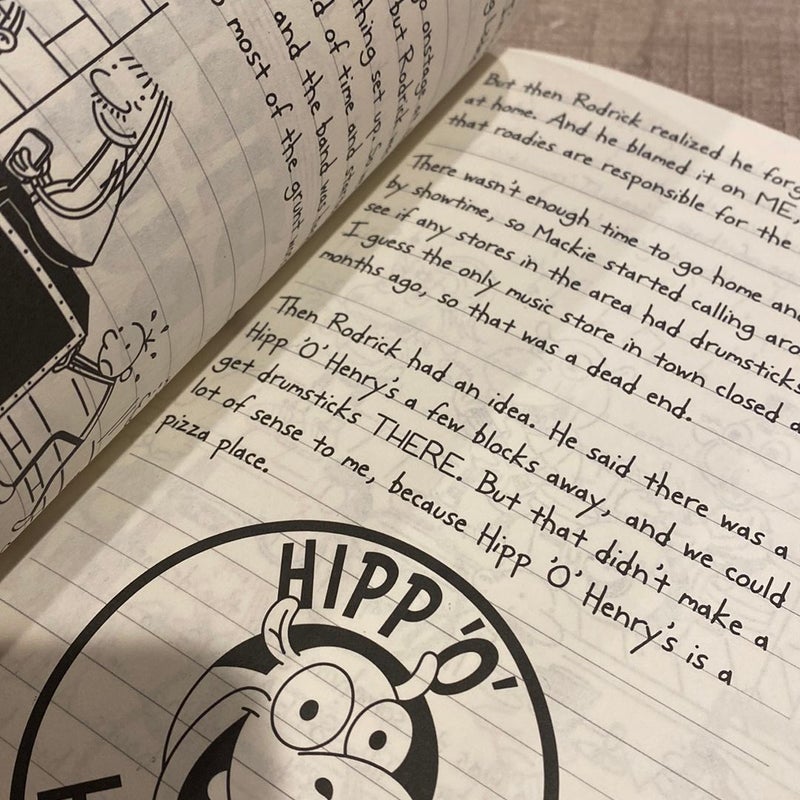 go onstage
but Rodrick
rything set up.
d of time and
and the band
most of the grunt
But then Rodrick realized he
at home. And he blamed it on ME,
that roadies are responsible for the
There wasn't enough time to go home and
by showtime, so Mackie started calling
see if any stores in the area had drumsticks
I guess the only music store in town closed
months ago, so that was a dead end.
Then Rodrick had an idea. He said there was a
Hipp 'O' Henry's a few blocks away, and we could
get drumsticks THERE. But that didn't make a
lot of sense to me, because Hipp 'O' Henry's is a
pizza place.
HIPP 'O'